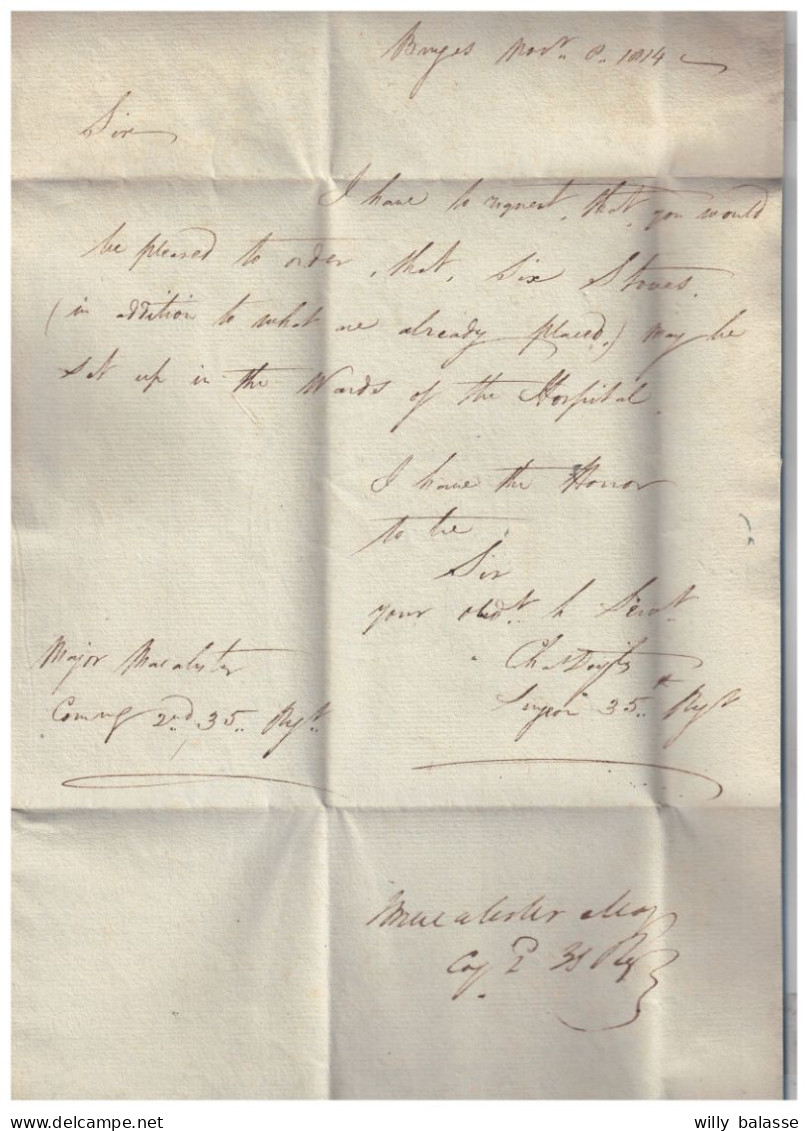 Bruges Novr. 8.. 1814
Sir
I have to request, that, you would
be pleased to order, that, six Stoves.
(in addition to what are already placed,) may be
set up in the Wards of the Hospital
I have the Honor
to be
Sir
your obedt. h Servt.
Major Macalister
Comng 2nd.. 35.. Regt.
Chas Doyle
Surgeon 35..th Regt
Macalister Maj
2 35 Reg
willy balasse